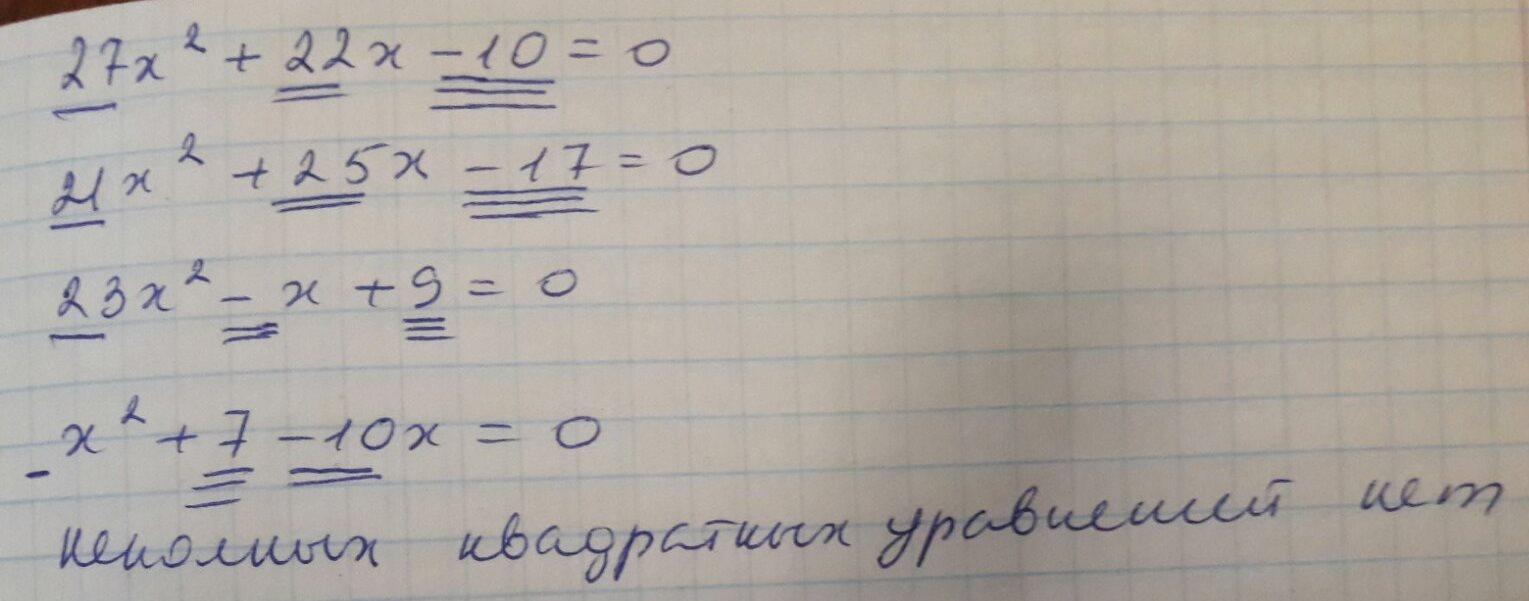 27x² + 22x - 10 = 0
21x² + 25x - 17 = 0
23x² - x + 9 = 0
x² + 7 - 10x = 0
неполных квадратных уравнений нет